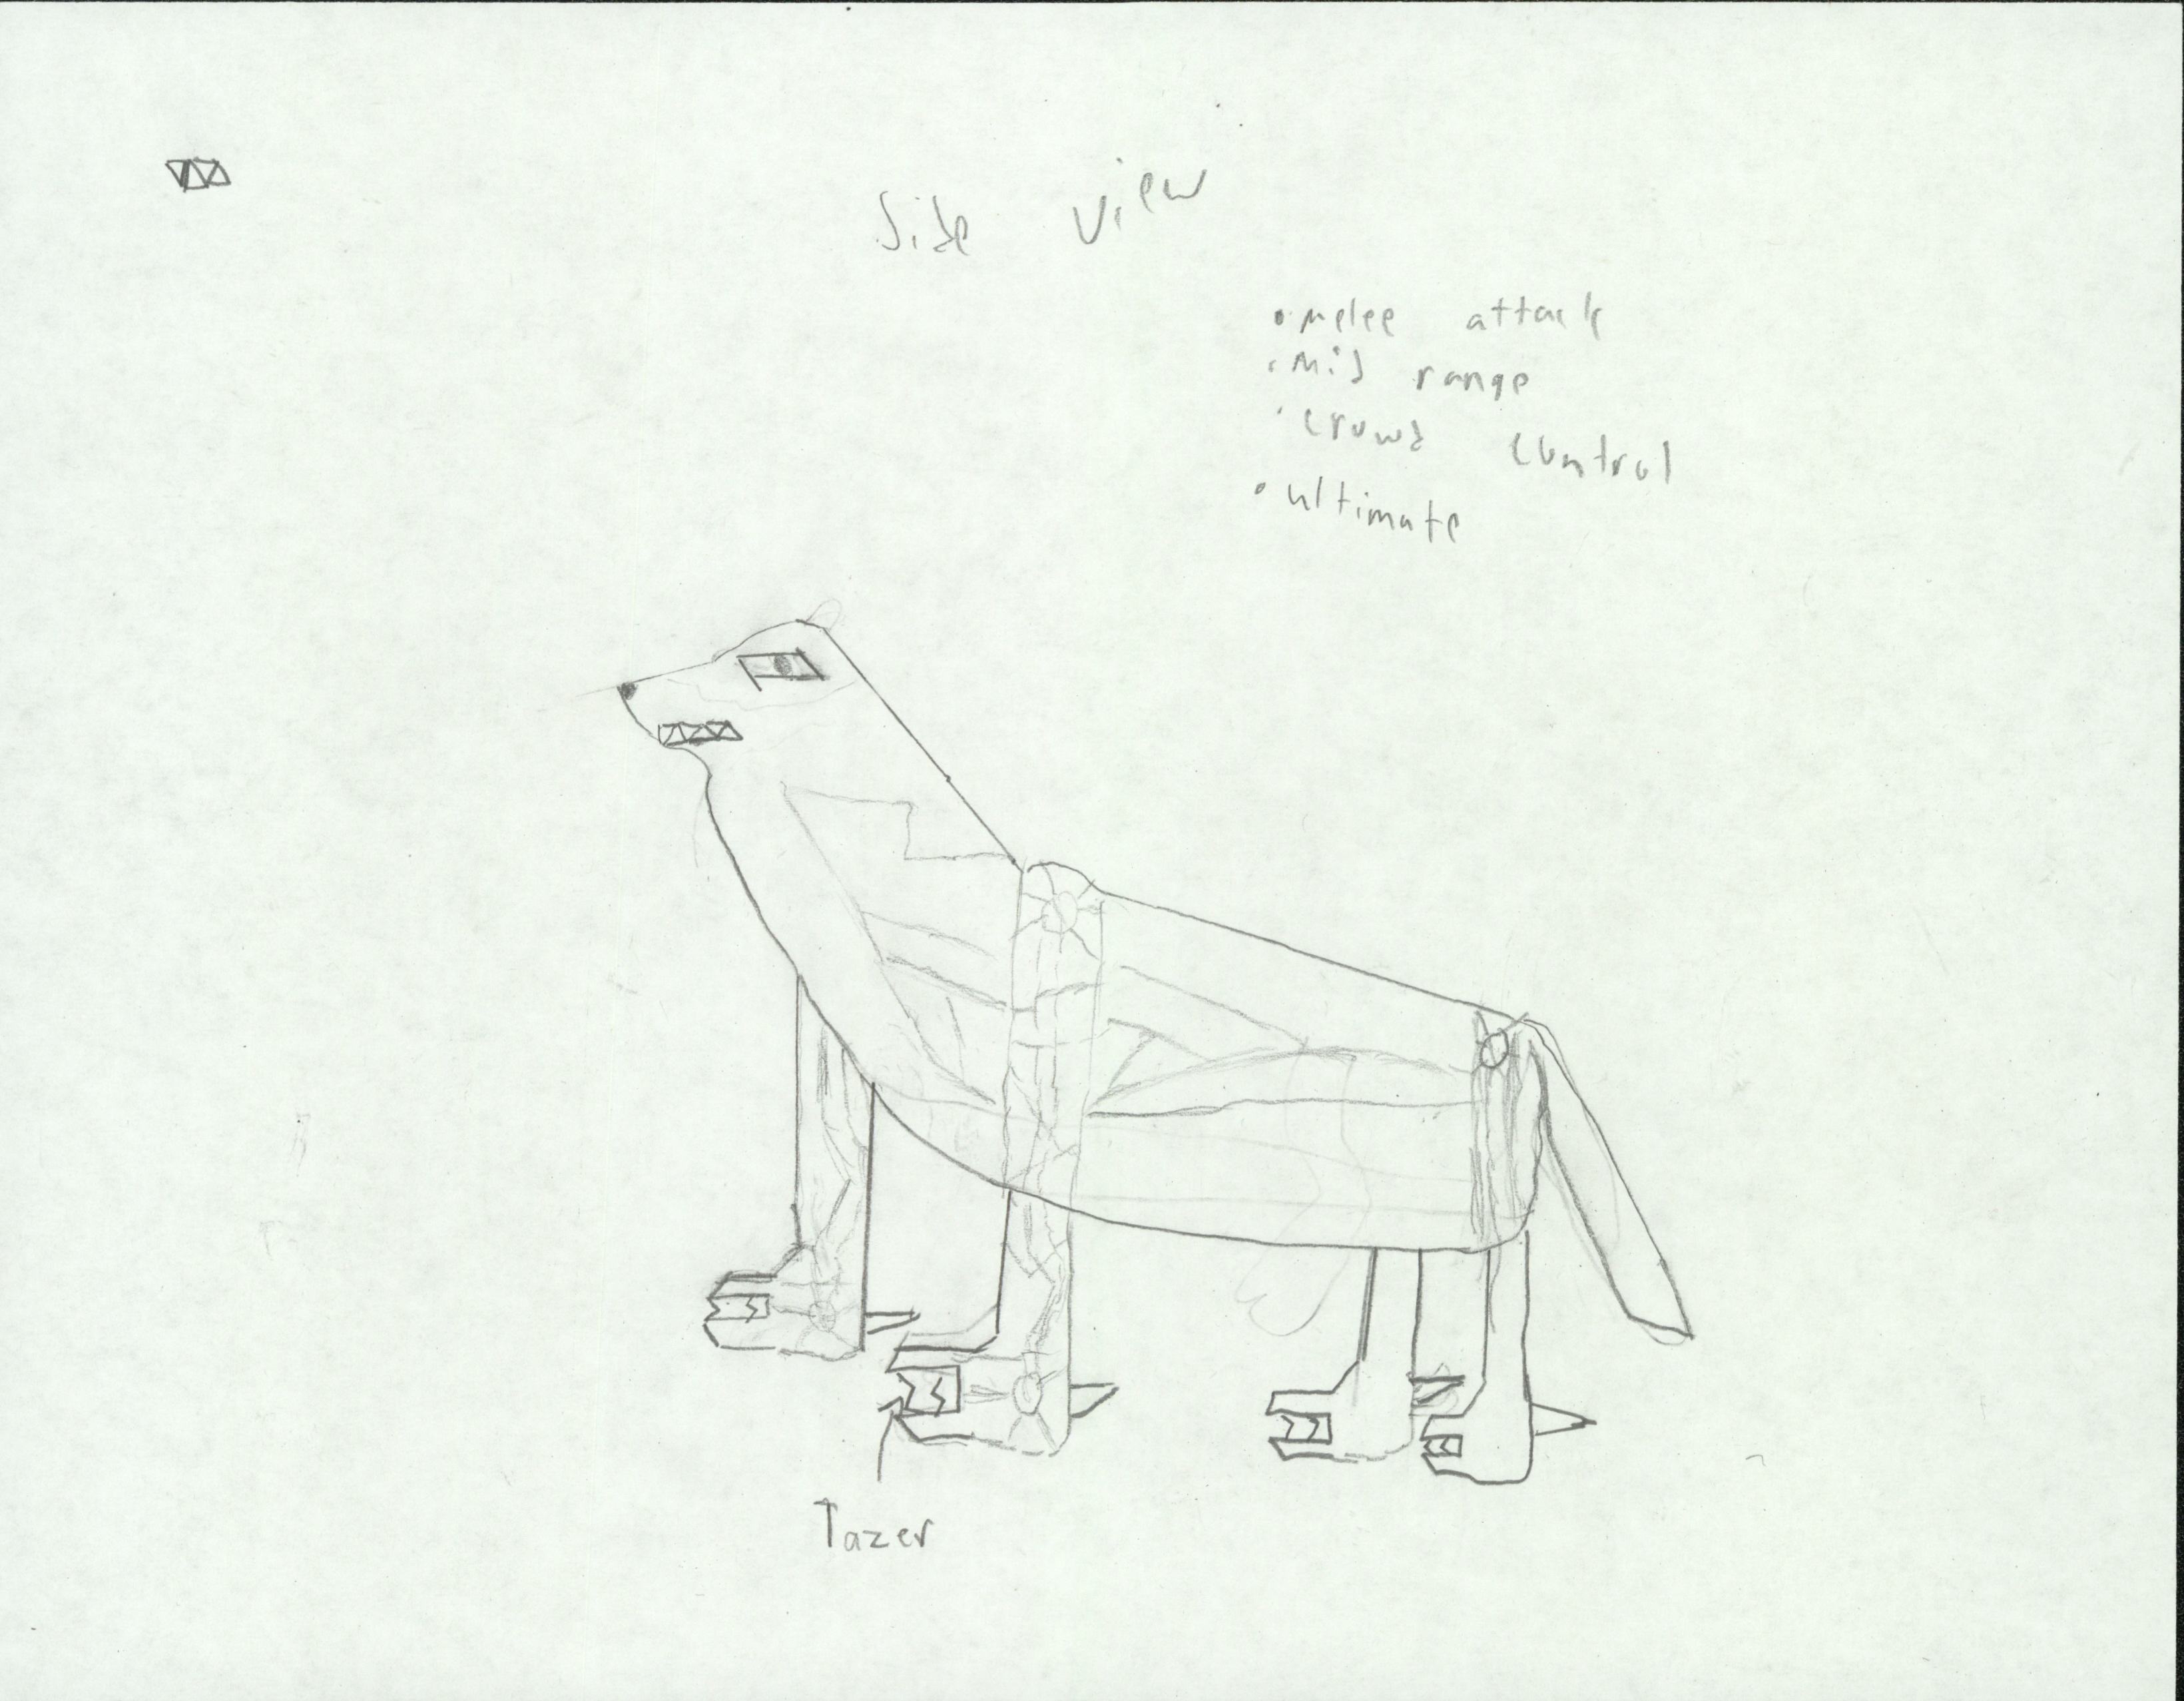 Side view
• melee attack
• Mid range
• crowd control
• ultimate
Tazer